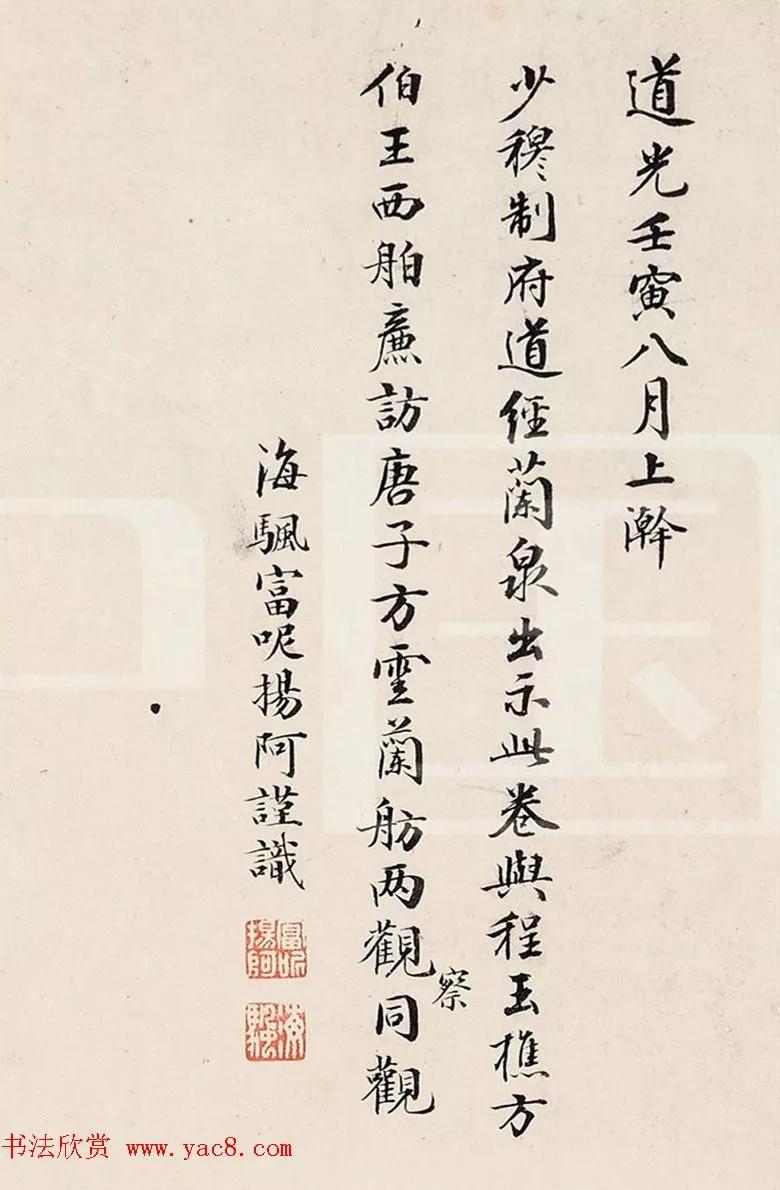 道光壬寅八月上澣
少穆制府道經蘭泉出示此卷與程玉樵方
伯王西舶廉訪唐子方霊蘭舫两觀察同觀
海颿富呢揚阿謹識
富呢揚阿
海颿
书法欣赏 www.yac8.com